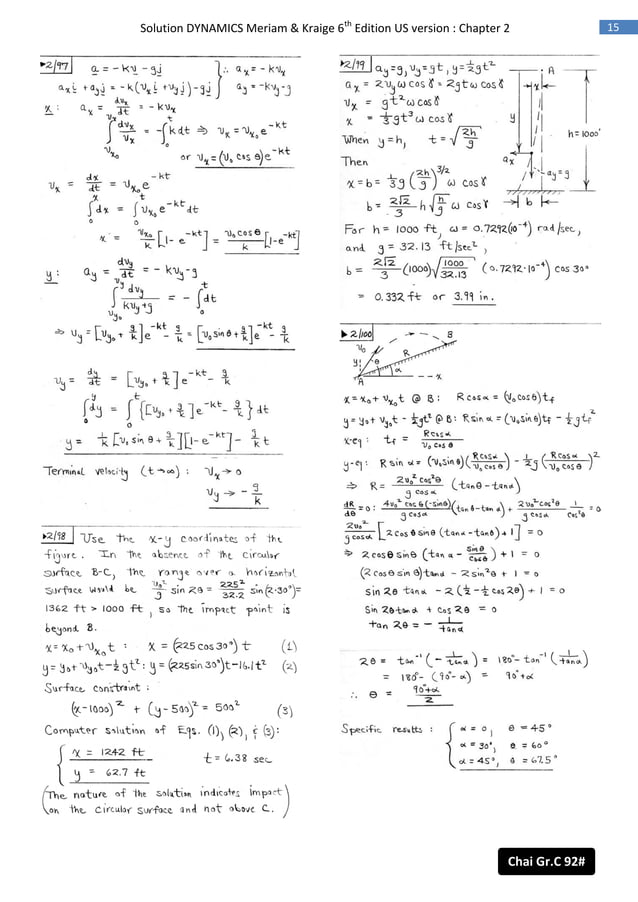 Solution DYNAMICS Meriam & Kraige 6th Edition US version : Chapter 2
15
▶2/97 a = -kv - gj
a_x i + a_y j = -k(v_x i + v_y j) - gj } ∴ a_x = -kv_x
a_y = -kv_y - g
x: a_x = dv_x/dt = -kv_x
∫_{v_x0}^{v_x} dv_x/v_x = -∫_0^t k dt ⇒ v_x = v_x0 e^{-kt}
or v_x = (v_0 cos θ) e^{-kt}
v_x = dx/dt = v_x0 e^{-kt}
∫_0^x dx = ∫_0^t v_x0 e^{-kt} dt
x = v_x0/k [1 - e^{-kt}] = v_0 cos θ/k [1 - e^{-kt}]
y: a_y = dv_y/dt = -kv_y - g
∫_{v_y0}^{v_y} dv_y/(kv_y + g) = -∫_0^t dt
⇒ v_y = [v_y0 + g/k] e^{-kt} - g/k = [v_0 sin θ + g/k] e^{-kt} - g/k
v_y = dy/dt = [v_y0 + g/k] e^{-kt} - g/k
∫_0^y dy = ∫_0^t {[v_y0 + g/k] e^{-kt} - g/k} dt
y = 1/k [v_0 sin θ + g/k][1 - e^{-kt}] - g/k t
Terminal velocity (t→∞) : v_x → 0
v_y → -g/k
▶2/98 Use the x-y coordinates of the
figure. In the absence of the circular
surface B-C, the range over a horizontal
surface would be v_0²/g sin 2θ = 225²/32.2 sin(2·30°)=
1362 ft > 1000 ft, so the impact point is
beyond B.
x = x_0 + v_x0 t : x = (225 cos 30°) t (1)
y = y_0 + v_y0 t - ½gt² : y = (225 sin 30°)t - 16.1t² (2)
Surface constraint :
(x-1000)² + (y-500)² = 500² (3)
Computer solution of Eqs. (1), (2), & (3):
{ x = 1242 ft t = 6.38 sec
y = 62.7 ft
(The nature of the solution indicates impact
on the circular surface and not above C.)
▶2/99 a_y = g, v_y = gt, y = ½gt²
a_x = 2v_y ω cos γ = 2gtω cos γ
v_x = gt²ω cos γ
x = ⅓gt³ ω cos γ
When y = h, t = √(2h/g)
Then
x = b = ⅓g (2h/g)^{3/2} ω cos γ
b = 2√2/3 h √(h/g) ω cos γ
A
x
y
h = 1000'
a_x
a_y = g
b
For h = 1000 ft, ω = 0.7292(10⁻⁴) rad/sec,
and g = 32.13 ft/sec²,
b = 2√2/3 (1000)√(1000/32.13) (0.7292·10⁻⁴) cos 30°
= 0.332 ft or 3.99 in.
▶2/100
B
v_0
y
θ
R
α
A
x
x = x_0 + v_x0 t @ B : R cos α = (v_0 cos θ) t_f
y = y_0 + v_y0 t - ½gt² @ B : R sin α = (v_0 sin θ) t_f - ½gt_f²
x-eq : t_f = R cos α/v_0 cos θ
y-eq : R sin α = (v_0 sin θ)(R cos α/v_0 cos θ) - ½g (R cos α/v_0 cos θ)²
⇒ R = 2v_0² cos²θ/g cos α (tan θ - tan α)
dR/dθ = 0 : 4v_0² cos θ(-sin θ)/g cos α (tan θ - tan α) + 2v_0² cos²θ/g cos α 1/cos²θ = 0
2v_0²/g cos α [2 cos θ sin θ (tan α - tan θ) + 1] = 0
⇒ 2 cos θ sin θ (tan α - sin θ/cos θ) + 1 = 0
(2 cos θ sin θ) tan α - 2 sin²θ + 1 = 0
sin 2θ tan α - 2(½ - ½ cos 2θ) + 1 = 0
sin 2θ tan α + cos 2θ = 0
tan 2θ = -1/tan α
2θ = tan⁻¹(-1/tan α) = 180° - tan⁻¹(1/tan α)
= 180° - (90° - α) = 90° + α
∴ θ = 90°+α/2
Specific results : { α = 0, θ = 45°
α = 30°, θ = 60°
α = 45°, θ = 67.5°
Chai Gr.C 92#